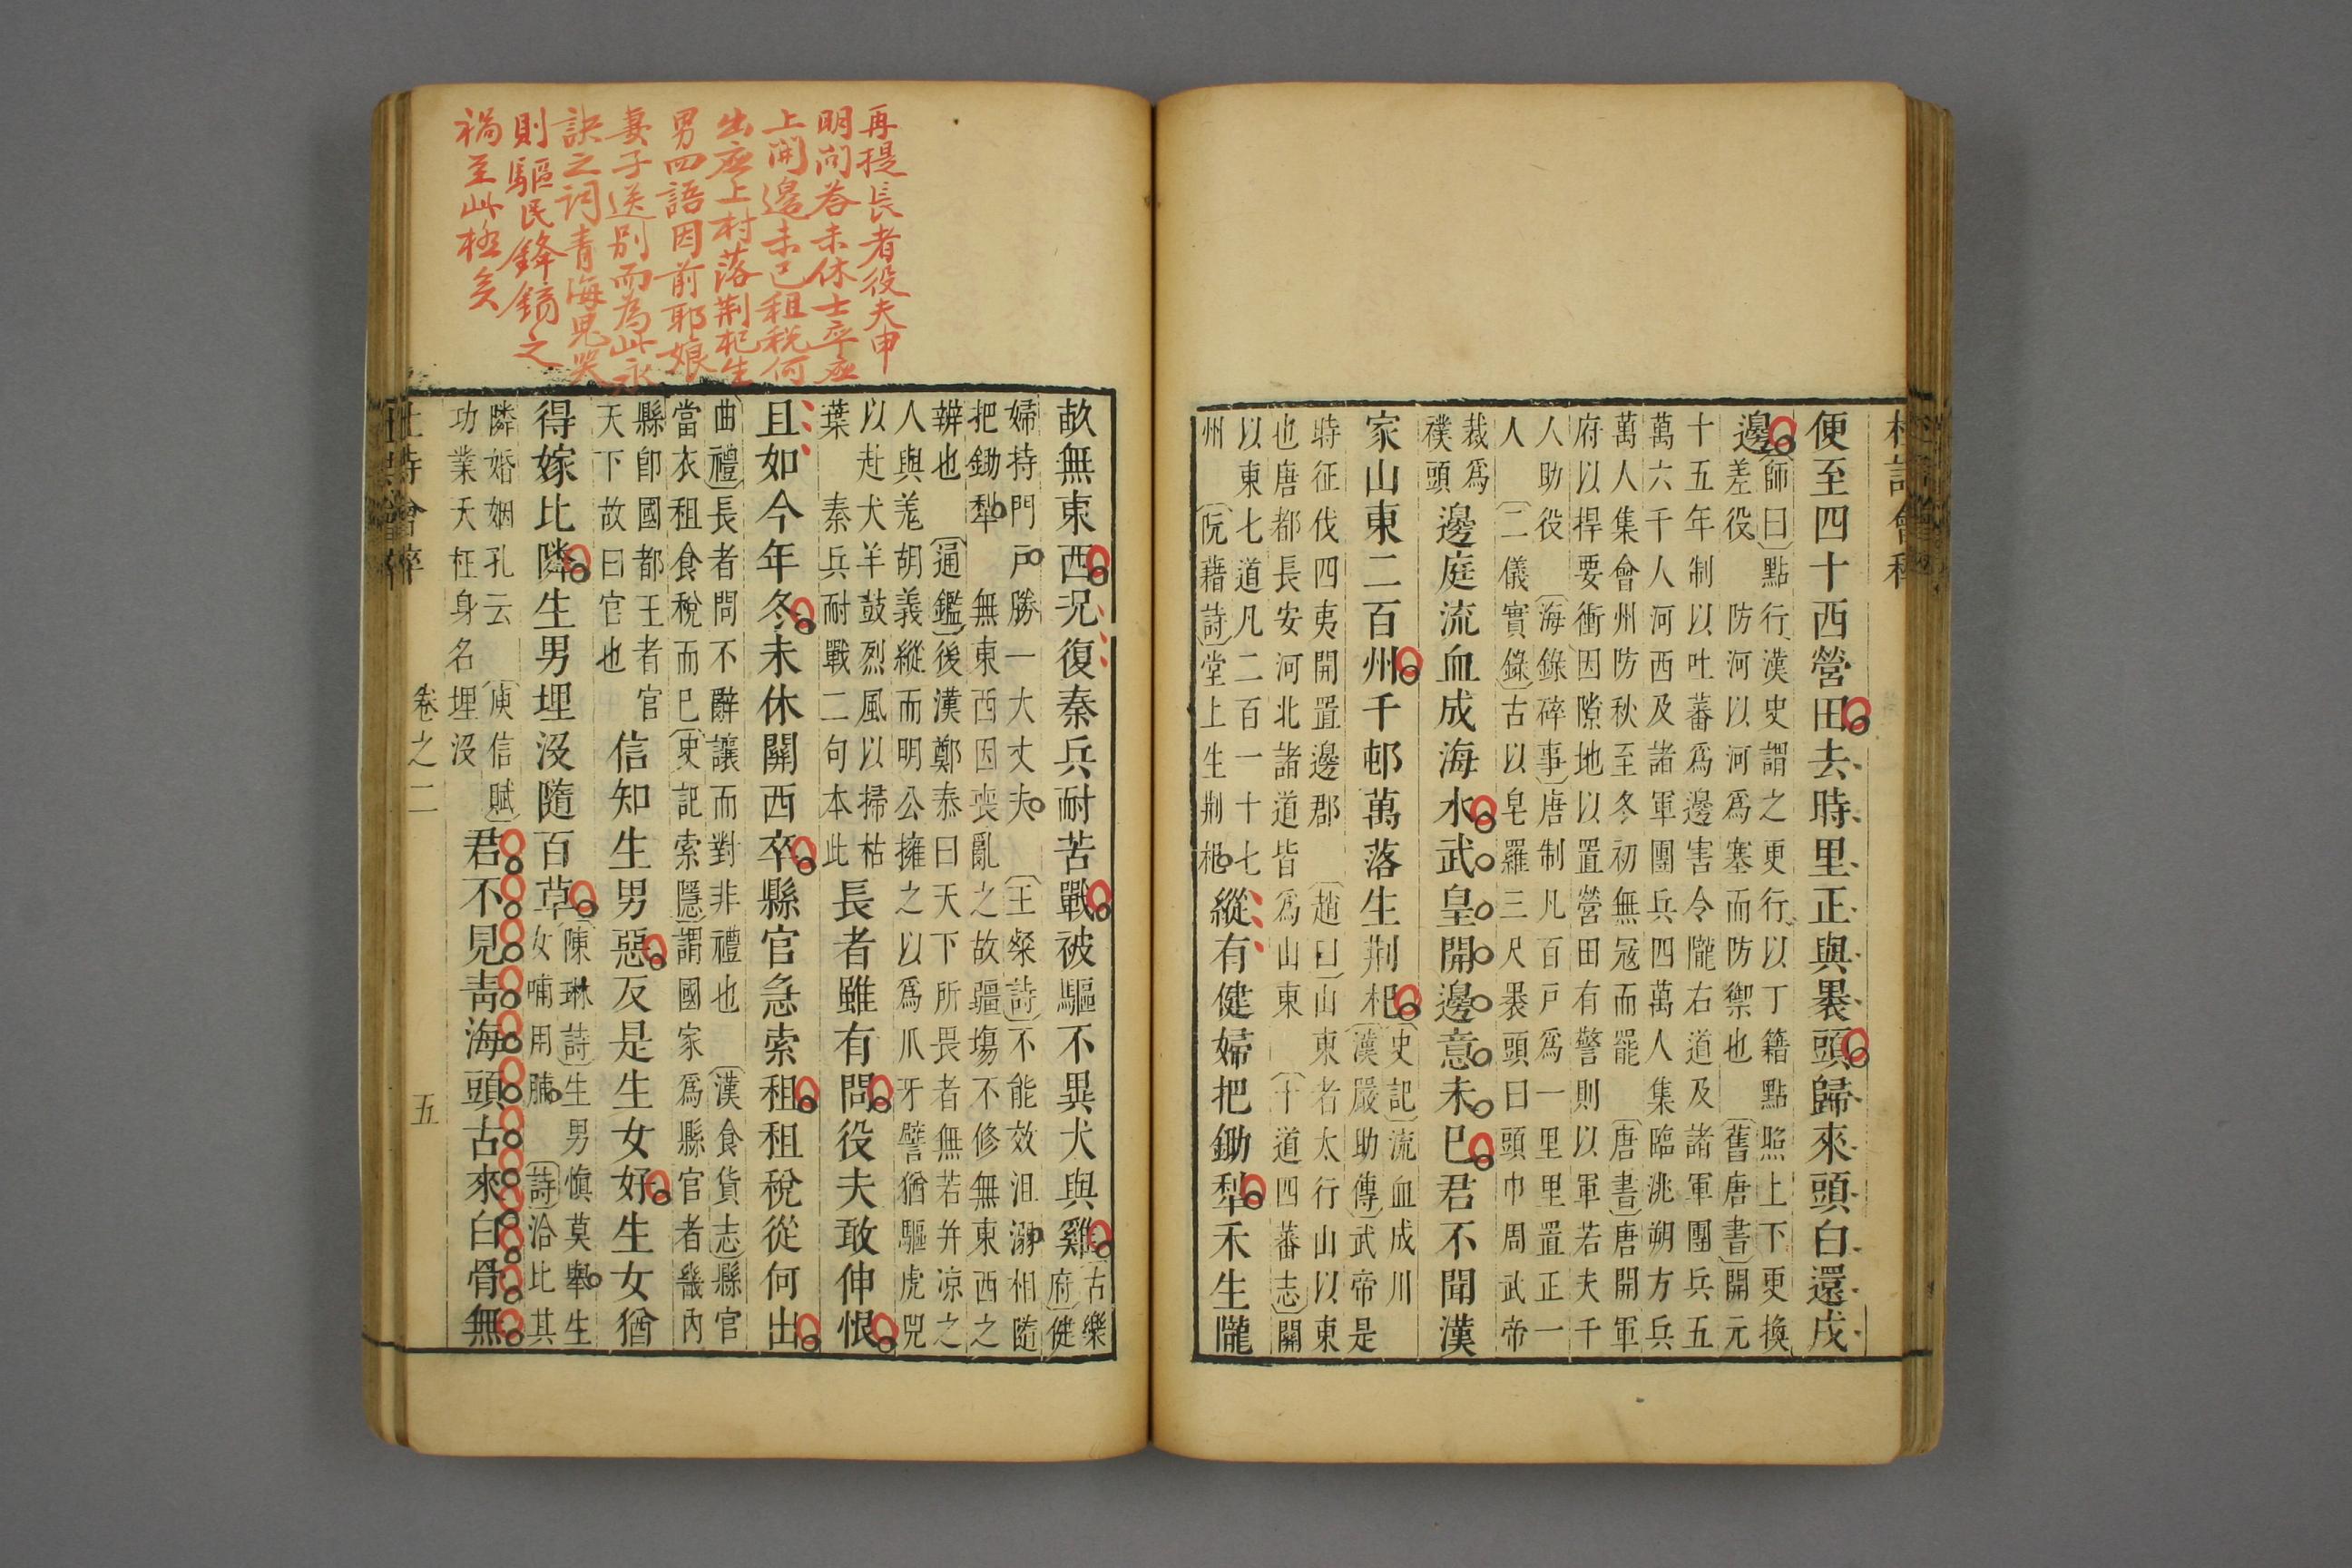 便至四十西營田去時里正與褁頭歸來頭白還戍
邊
師曰點行漢史謂之更行以丁籍點照上下更換
差役防河以河爲塞而防禦也舊唐書開元
十五年制以吐蕃爲邊害令隴右道及諸軍團兵五
萬六千人河西及諸軍團兵四萬人集臨洮朔方兵
萬人集會州防秋至冬初無冦而罷唐書唐開軍
府以捍要衝因隙地以置營田有警則以軍若夫千
人助役海錄碎事唐制凡百戶爲一里里置正一
人二儀實錄古以皂羅三尺褁頭曰頭巾周武帝
裁爲
襆頭
邊庭流血成海水武皇開邊意未巳君不聞漢
家山東二百州千邨萬落生荆杞
史記流血成川
漢嚴助傳武帝是
時征伐四夷開置邊郡趙曰山東者太行山以東
也唐都長安河北諸道皆爲山東十道四蕃志關
以東七道凡二百一十七
州阮藉詩堂上生荆杞
縱有健婦把鋤犁禾生隴
畝無東西况復秦兵耐苦戰被驅不異犬與雞
古樂
府健
婦持門戶勝一大丈夫王粲詩不能效沮溺相隨
把鋤犁無東西因喪亂之故疆塲不修無東西之
辨也通鑑後漢鄭泰曰天下所畏者無若并凉之
人與羗胡義縱而明公擁之以爲爪牙譬猶驅虎兕
以赴犬羊鼓烈風以掃枯
葉秦兵耐戰二句本此
長者雖有問役夫敢伸恨
且如今年冬未休關西卒縣官急索租租稅從何出
曲禮長者問不辭讓而對非禮也漢食貨志縣官
當衣租食稅而巳史記索隱謂國家爲縣官者畿內
縣卽國都王者官
天下故曰官也
信知生男惡反是生女好生女猶
得嫁比隣生男埋沒隨百草
陳琳詩生男愼莫舉生
女哺用脯詩洽比其
隣婚姻孔云庾信賦
功業夭枉身名埋沒
君不見靑海頭古來白骨無
卷之二
五
再提長者役夫申
明問荅未休士卒應
上開邊未已租税何
出應上村落荆杞生
男四語因前耶娘
妻子送别而為此永
訣之詞青海鬼哭
則驅民鋒鏑之
禍至此極矣